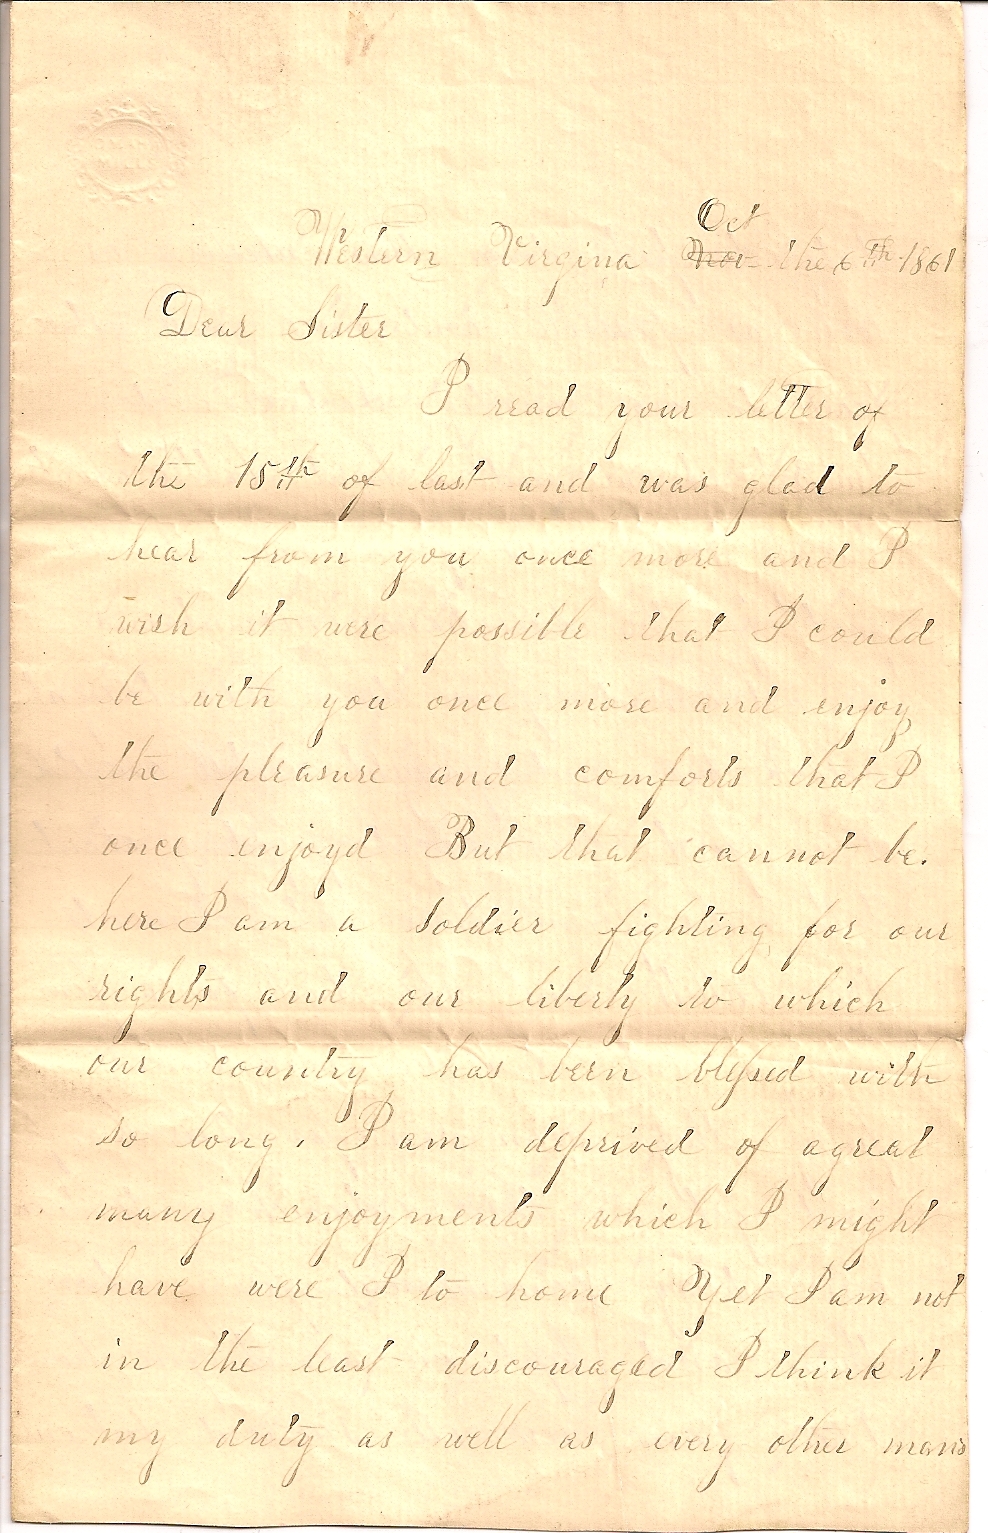 Oct
Western Virgina Nov the 6th 1861
Dear Sister
I read your letter of
the 15th of last and was glad to
hear from you once more and I
wish it were possible that I could
be with you once more and enjoy
the pleasure and comforts that I
once enjoyd But that cannot be.
here I am a soldier fighting for our
rights and our liberty to which
our country has been blessed with
so long. I am deprived of a great
many enjoyments which I might
have were I to home Yet I am not
in the least discouraged I think it
my duty as well as every other mans